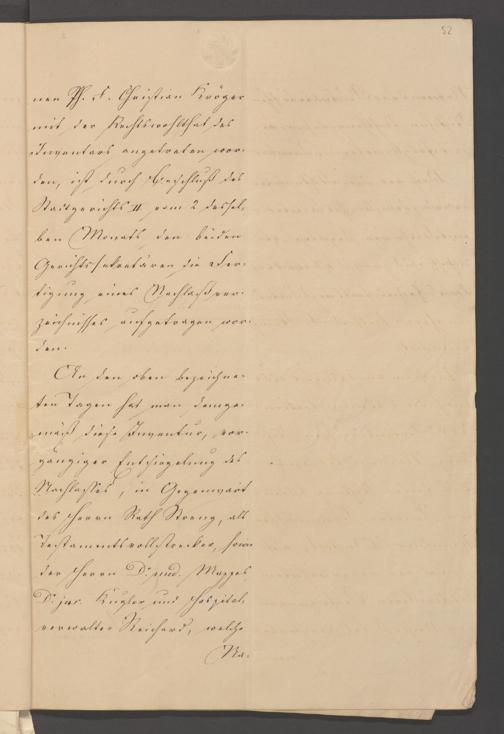 52
nen Ph. F. Christian Kröger
mit der Rechtswohlthat des
Inventars angetreten wor-
den, ist durch Beschluß des
Stadtgerichts II vom 2 dessel-
ben Monats den beiden
Gerichtssekretären die Fer-
tigung eines Nachlaßver-
zeichnisses aufgetragen wor-
den.
An den oben bezeichne-
ten Tagen hat man demge-
mäß diese Inventur, vor-
gängiger Entsiegelung des
Nachlasses, in Gegenwart
des Herrn Rath als
Testamentsvollstrecker, sowie
der Herren Dr. med. Mappes
Dr. jur. Kugler und Hospital-
verwalter Reichard, welche
Na-